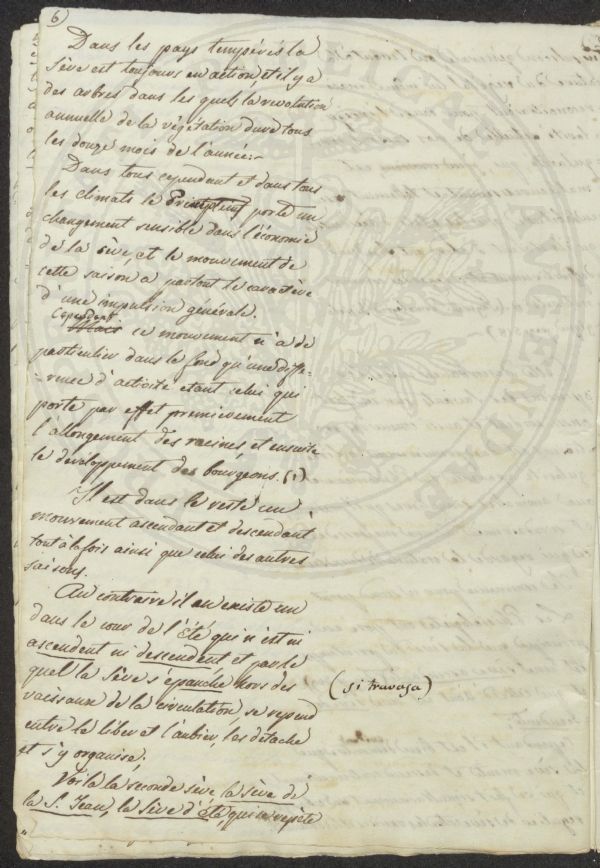 6)
Dans les pays tempérés la
sève est toujours en action et il y a
des arbres dans les quels la revolution
annuelle de la végétation dure tous
les douze mois de l'année.
Dans tous cependant et dans tous
les climats le Printemps porte un
changement sensible dans l'économie
de la sève, et le mouvement de
cette saison a partout le caractère
d'une impulsion générale.
Cependant
Mais ce mouvement n'a de
particulier dans le fond qu'une diffe-
-rence d'activité etant celui qui
porte par effet premierement
l'allongement des racines et ensuite
le développement des bourgeons. (1)
Il est dans le reste un
mouvement ascendant et descendant
tout à la fois ainsi que celui des autres
saisons.
Au contraire il en existe un
dans le cour de l'Été qui n'est ni
ascendent ni descendent et par le
quel la sève s'épanche hors des
(si travasa)
vaisseaux de la circulation, se repend
entre le liber et l'aubier, les détache
et s'y organise.
Voila la seconde sève, la sève de
la S. Jean, la sève d'été, qui se repète